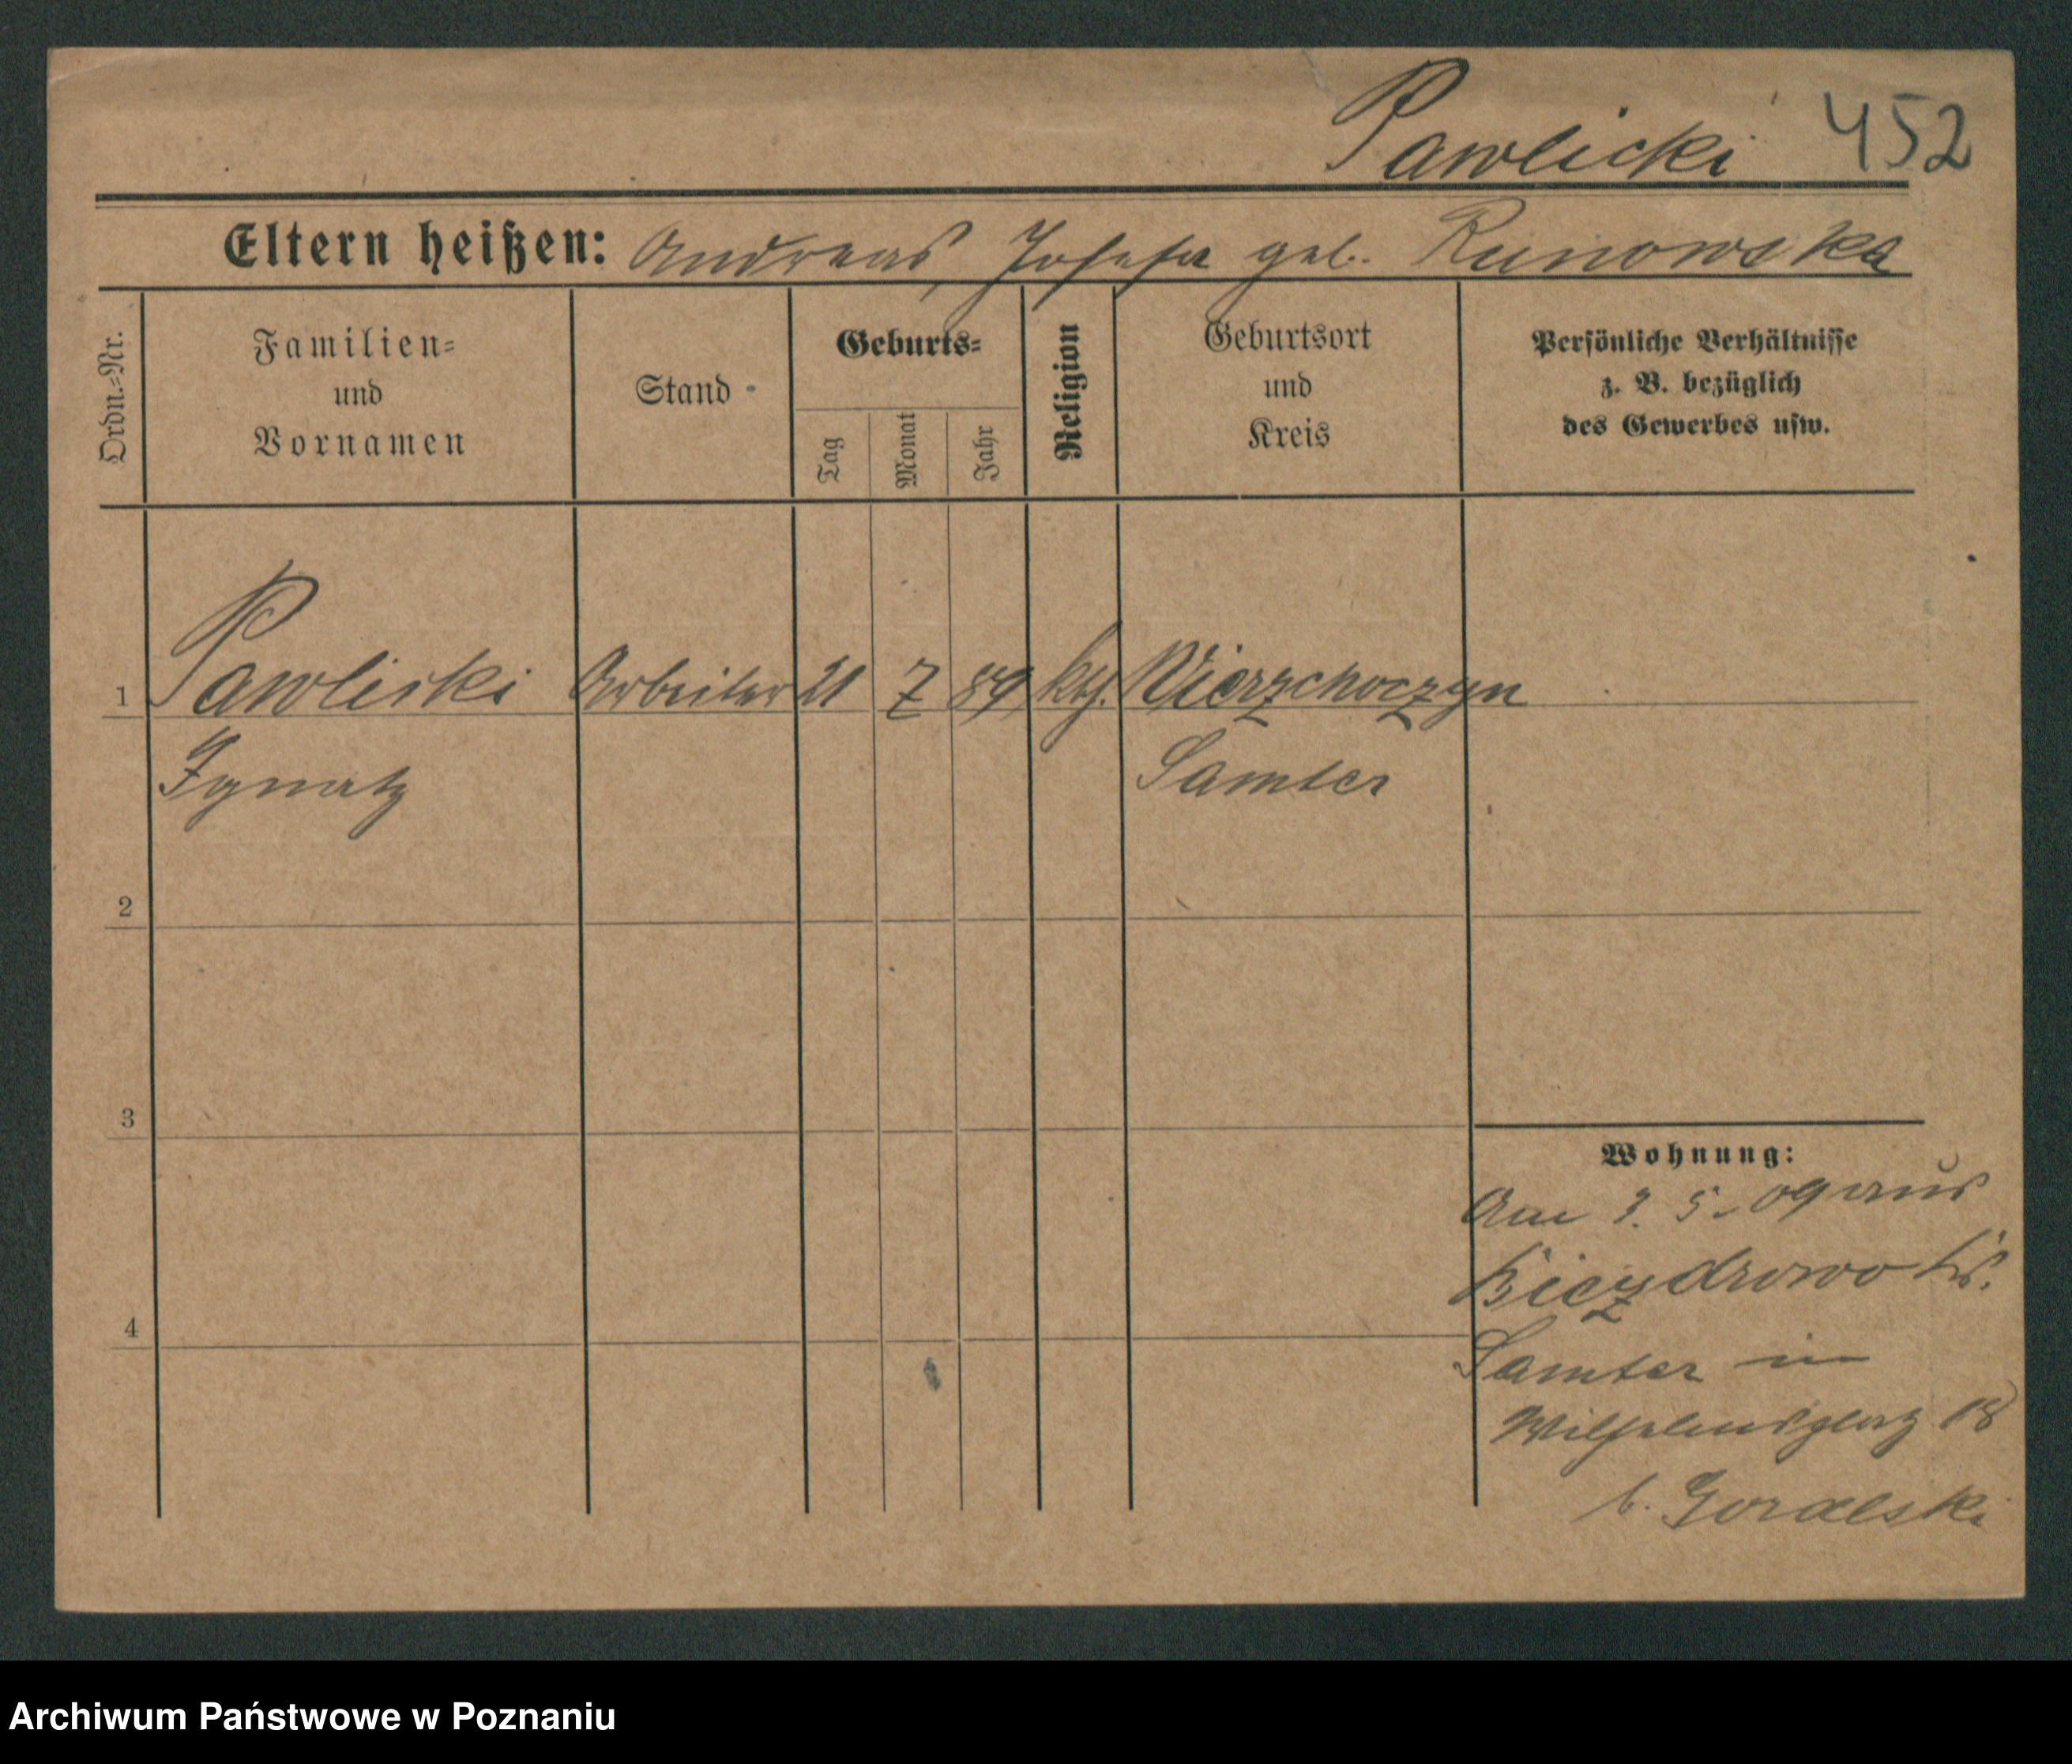 Pawlicki 452
Eltern heißen: Andreas, Josefa geb. Runowska
Ordn.-Nr.
Familien=
und
Vornamen
Stand
Geburts=
Tag
Monat
Jahr
Religion
Geburtsort
und
Kreis
Persönliche Verhältnisse
z. B. bezüglich
des Gewerbes usw.
1 Pawlicki Arbeiter 21 7 89 kth. Wierzchoczyn
Ignatz Samter
2
3
4
Wohnung:
Am 3. 5. 09 aus
Biezdrowo Kr.
Samter in
Wilhelmsplatz 18
b. Goralski
Archiwum Państwowe w Poznaniu